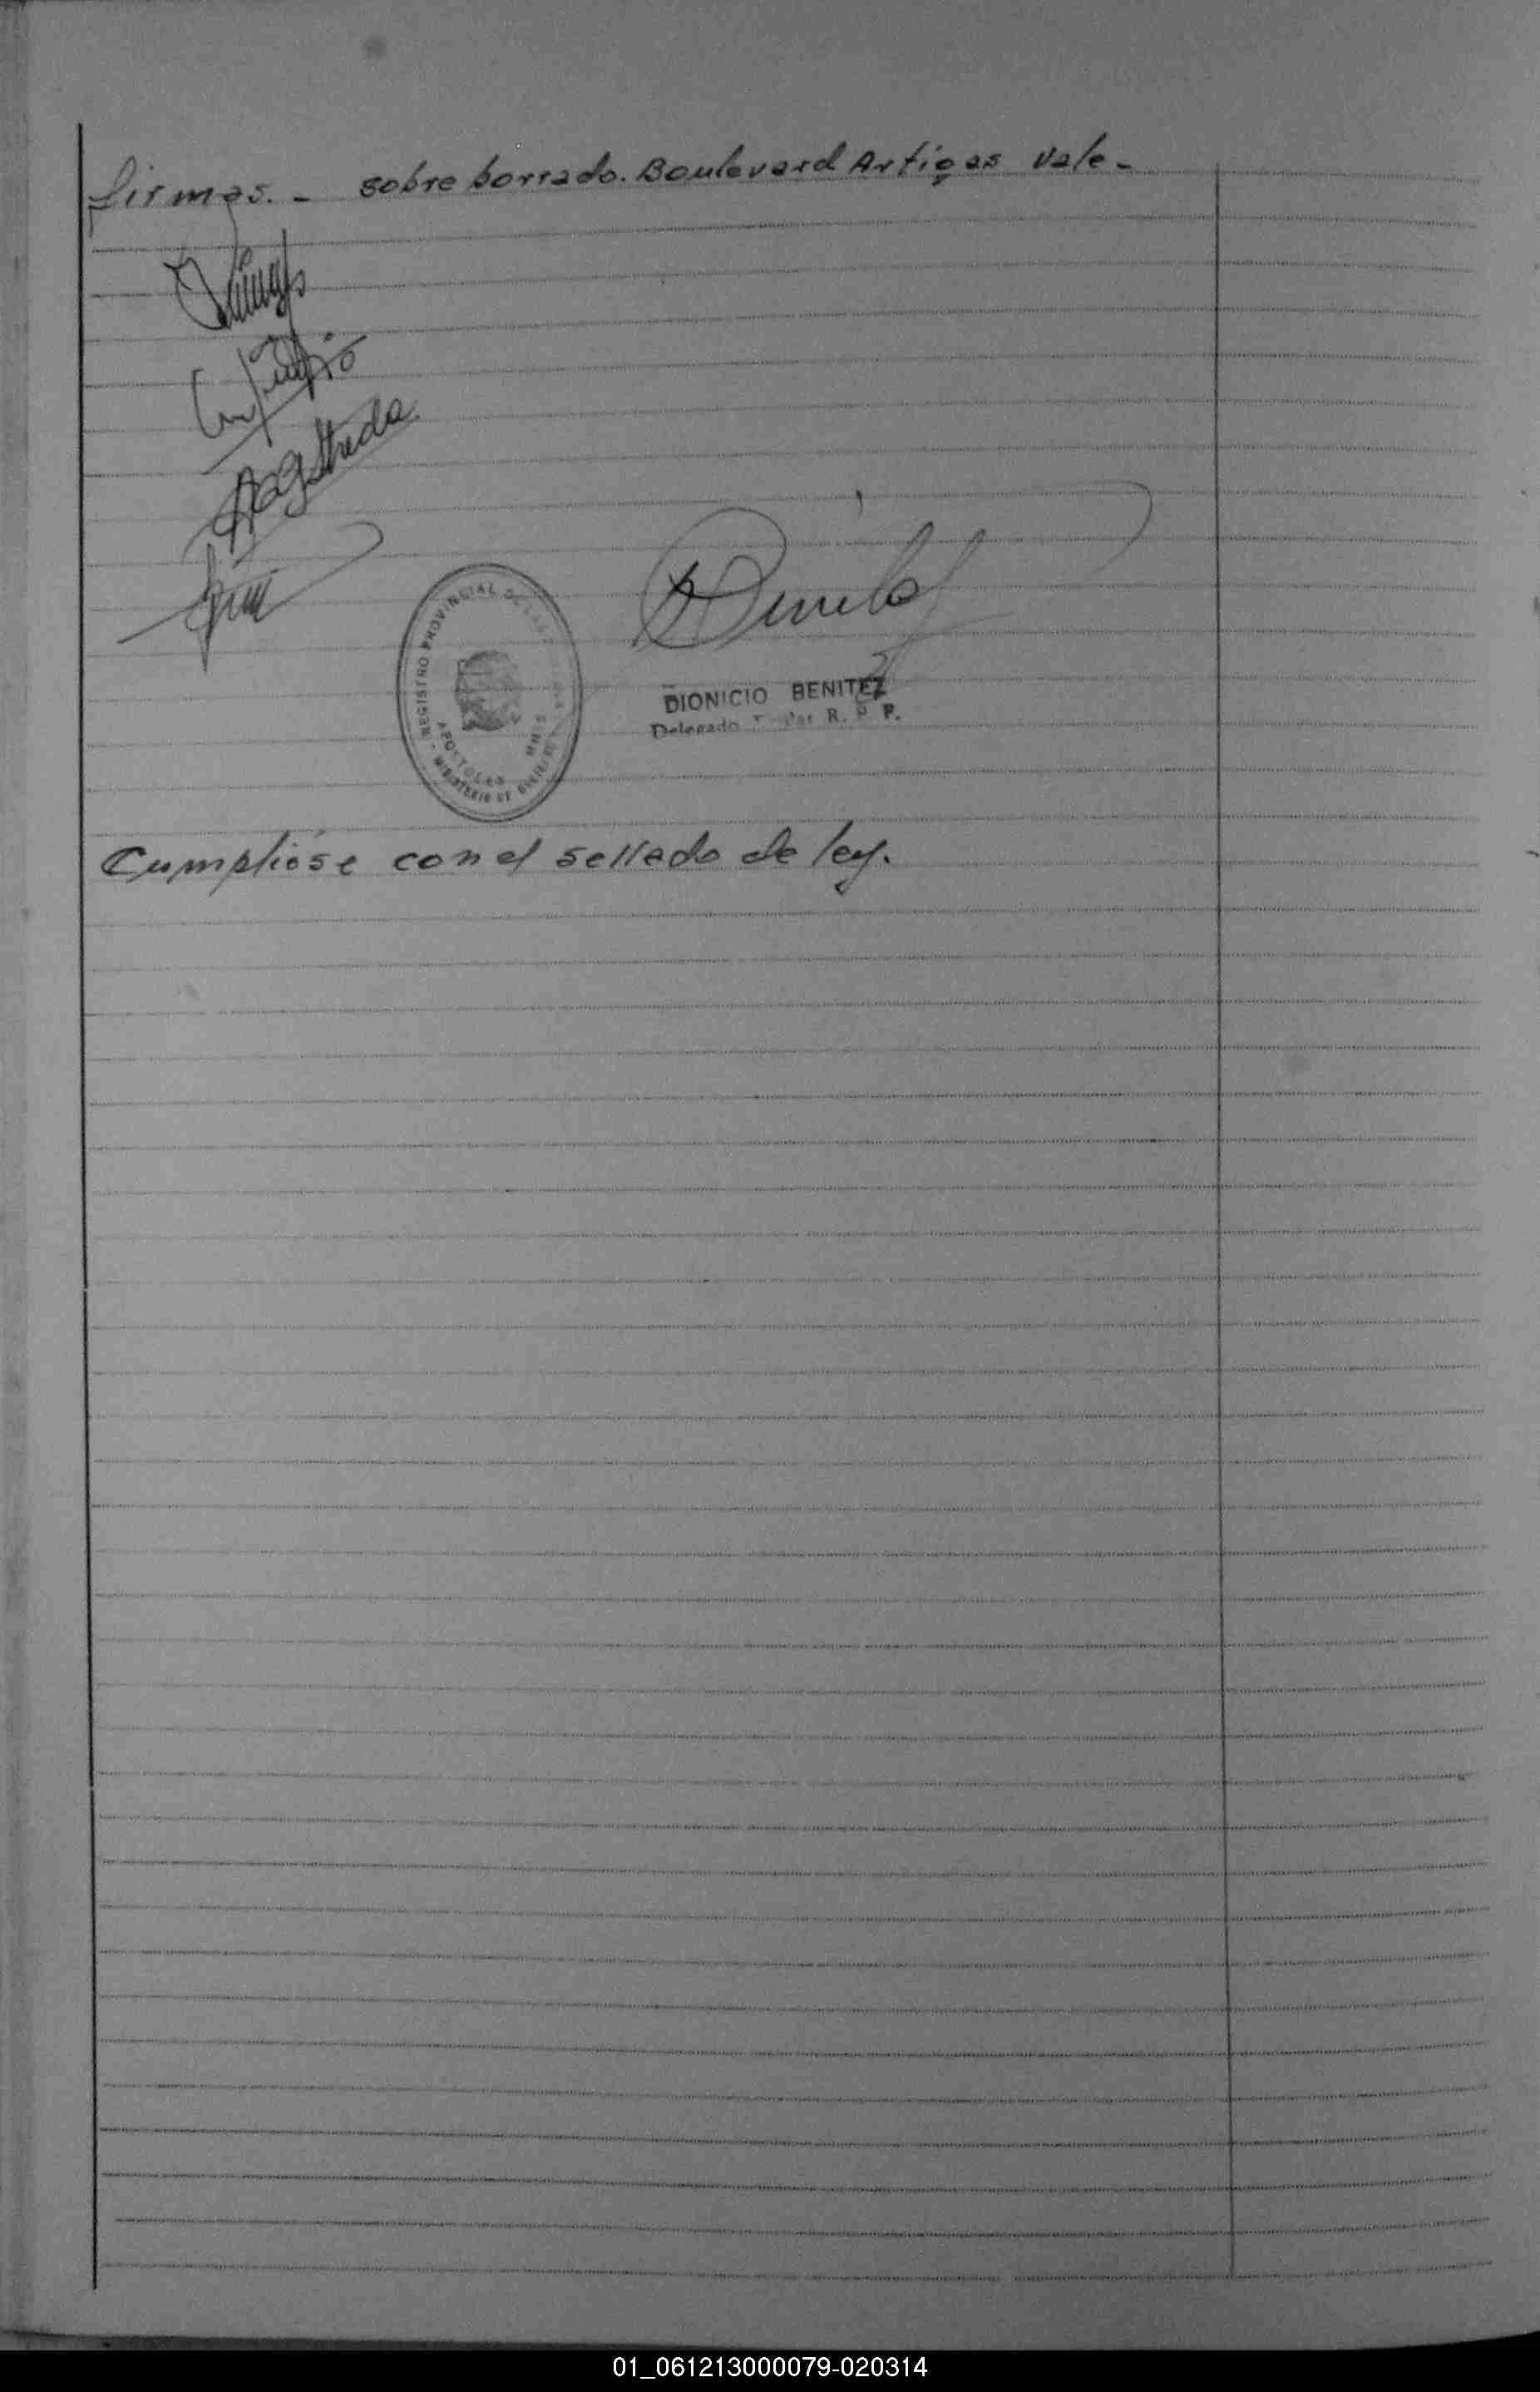 firmas. - sobre borrado. Boulevard Artigas Vale -
REGISTRO PROVINCIAL DE LAS
APOSTOLES MNES
MINISTERIO DE
DIONICIO BENITEZ
Delegado R. P. P.
Cumplióse con el sellado de ley.
01_061213000079-020314